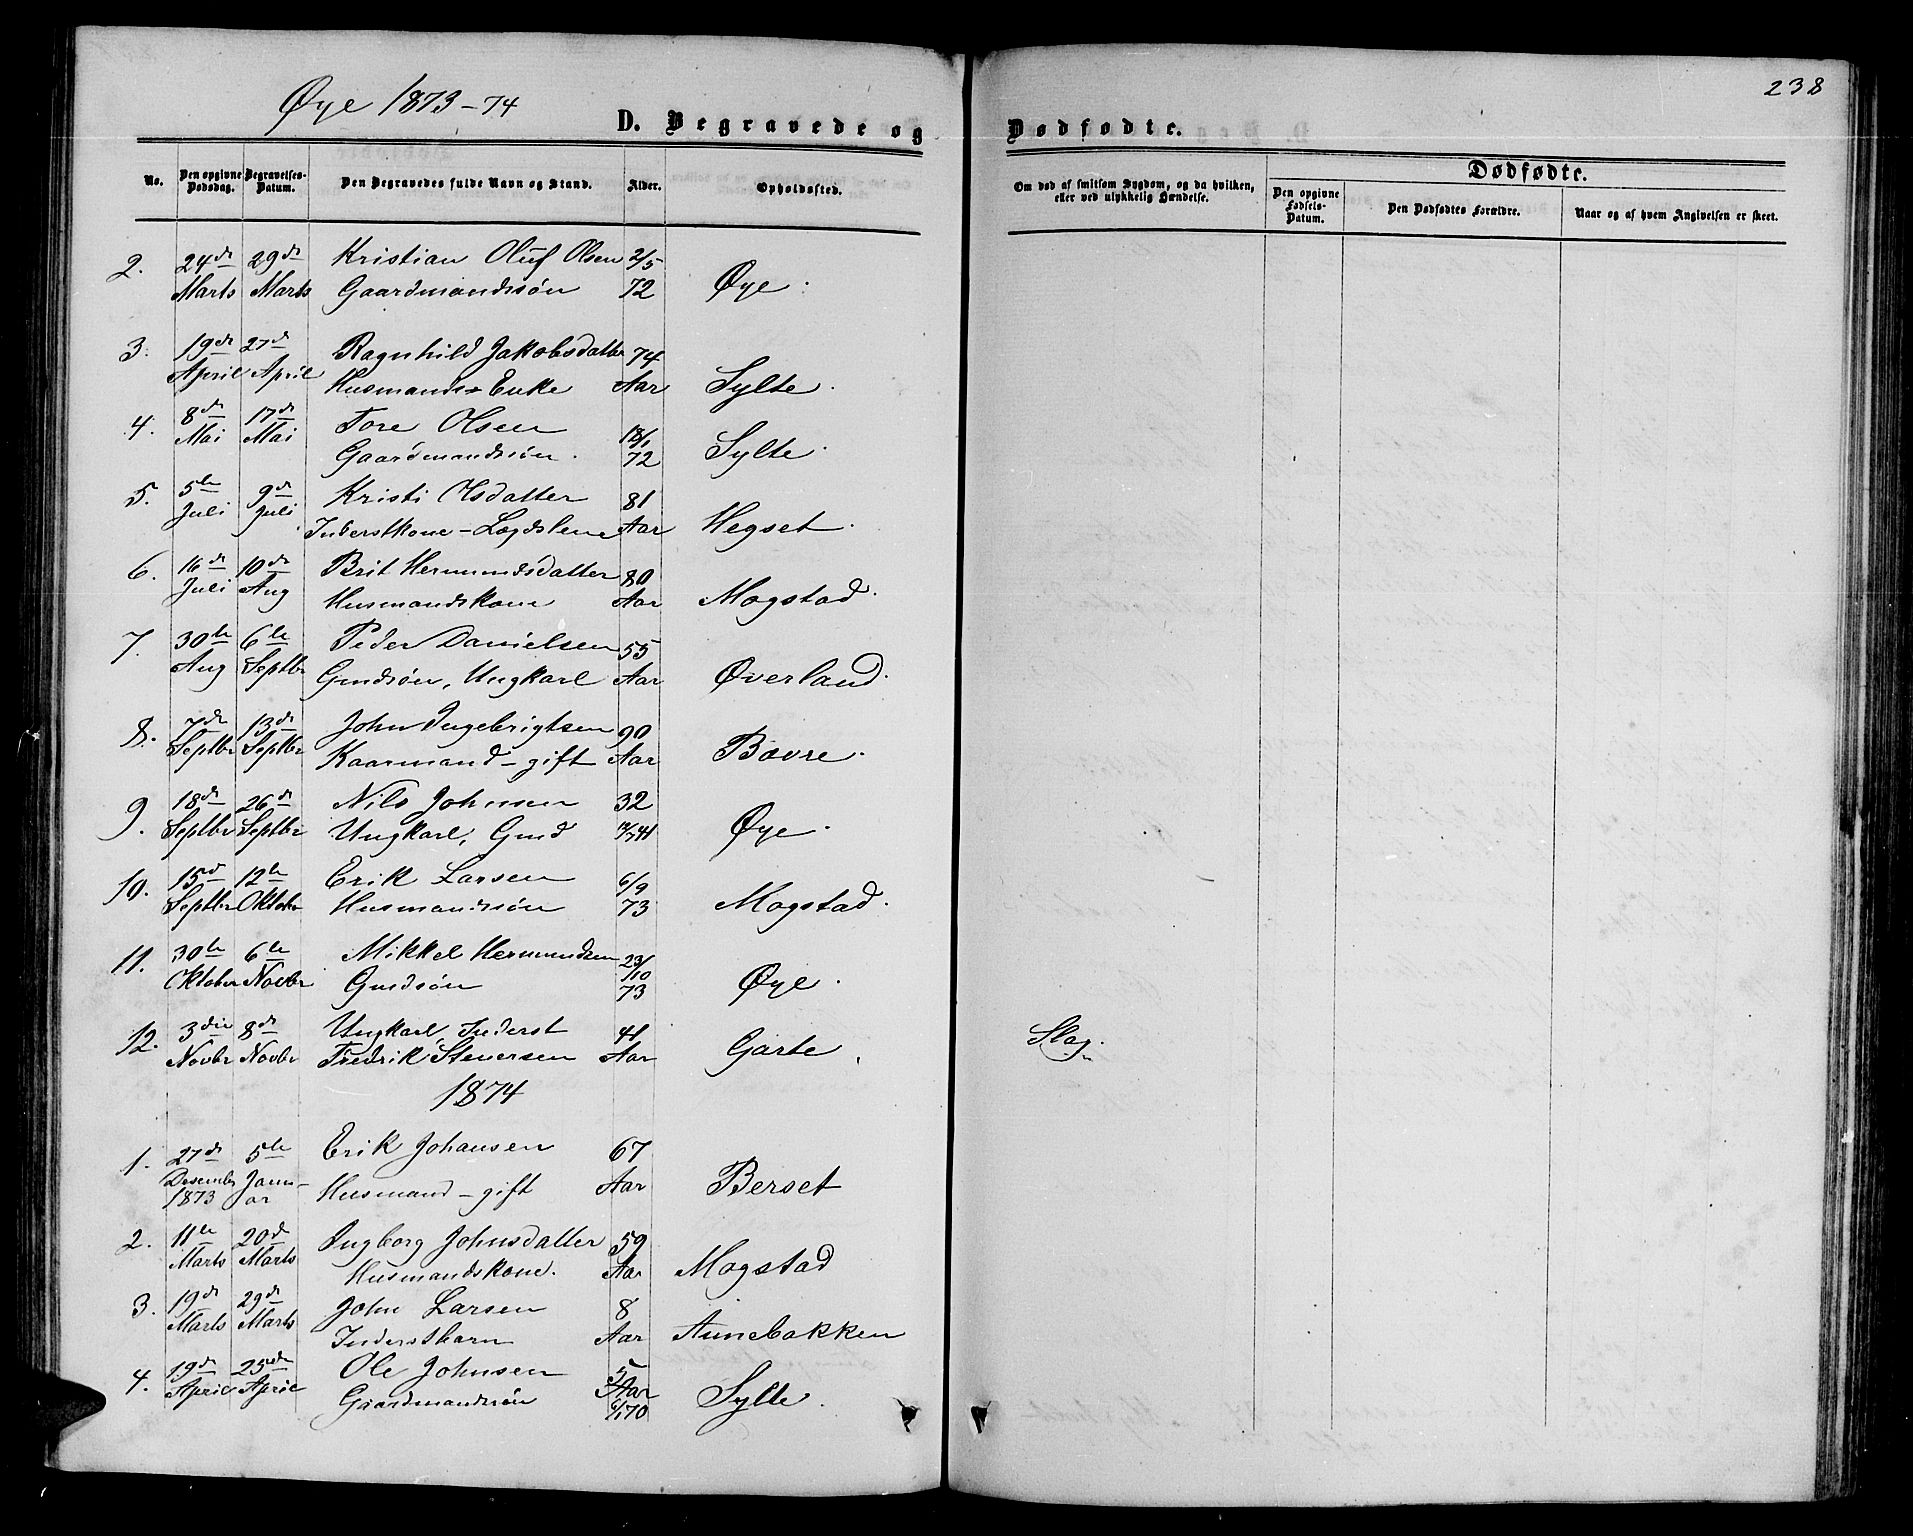 Øye 1873-74
238
D. Begravede og Dødfødte.
No. Den opgivne Dødsdag. Begravelses-Datum. Den Begravedes fulde Navn og Stand. Alder. Opholdssted.
Om død af smitsom Sygdom, og da hvilken, eller ved ulykkelig Hændelse.
Dødfødte.
Den opgivne Fødsels-Datum. Den Dødfødtes Forældre. Naar og af hvem Angivelsen er skeet.
2. 24de 29de Kristian Oluf Olsen 2/5
Marts Marts Gaardmandssøn 72 Øye.
3. 19de 27de Ragnhild Jakobsdatter 74
April April Husmands-Enke Aar Sylte.
4. 8de 17de Tore Olsen
Mai Mai Gaardmandssøn. 72 Sylte.
5. 5te 9de Kristi Olsdatter 81
Juli Juli Inderstkone - Lægdslem Aar Hegset.
6. 16de 10de Brit Hermundsdatter 80
Juli Aug Husmandskone Aar Mogstad.
7. 30te 6te Peder Danielsen 55
Aug Septbr Gmdsøn, Ungkarl Aar Øverland.
8. 7de 13de John Ingebrigtsen 90
Septbr Septbr Kaarmand - gift Aar Bævre.
9. 18de 26de Nils Johnsen 32
Septbr Septbr Ungkarl, Gmd Øye.
10. 15de 12te Erik Larsen 6/9
Septbr Oktober Husmandssøn 73 Mogstad.
11. 30te 6te Mikkel Hermundsen 23/10
Oktober Novbr Gmdsøn 73 Øye.
12. 3die 8de Ungkarl, Inderst 41
Novbr Novbr Fredrik Stenersen Aar Garte Slag.
1874
1. 27de 5te Erik Johansen 67
Desember Janu-
1873 ar Husmand - gift Aar Berset
2. 11te 20de Ingborg Johnsdatter 59
Marts Marts Husmandskone. Aar Mogstad
3. 19de 29de John Larsen 8
Marts Marts Inderstbarn Aar Annebakken
4. 19de 25de Ole Johnsen 5
April April Gaardmandssøn Aar Sylte.
6/1 70